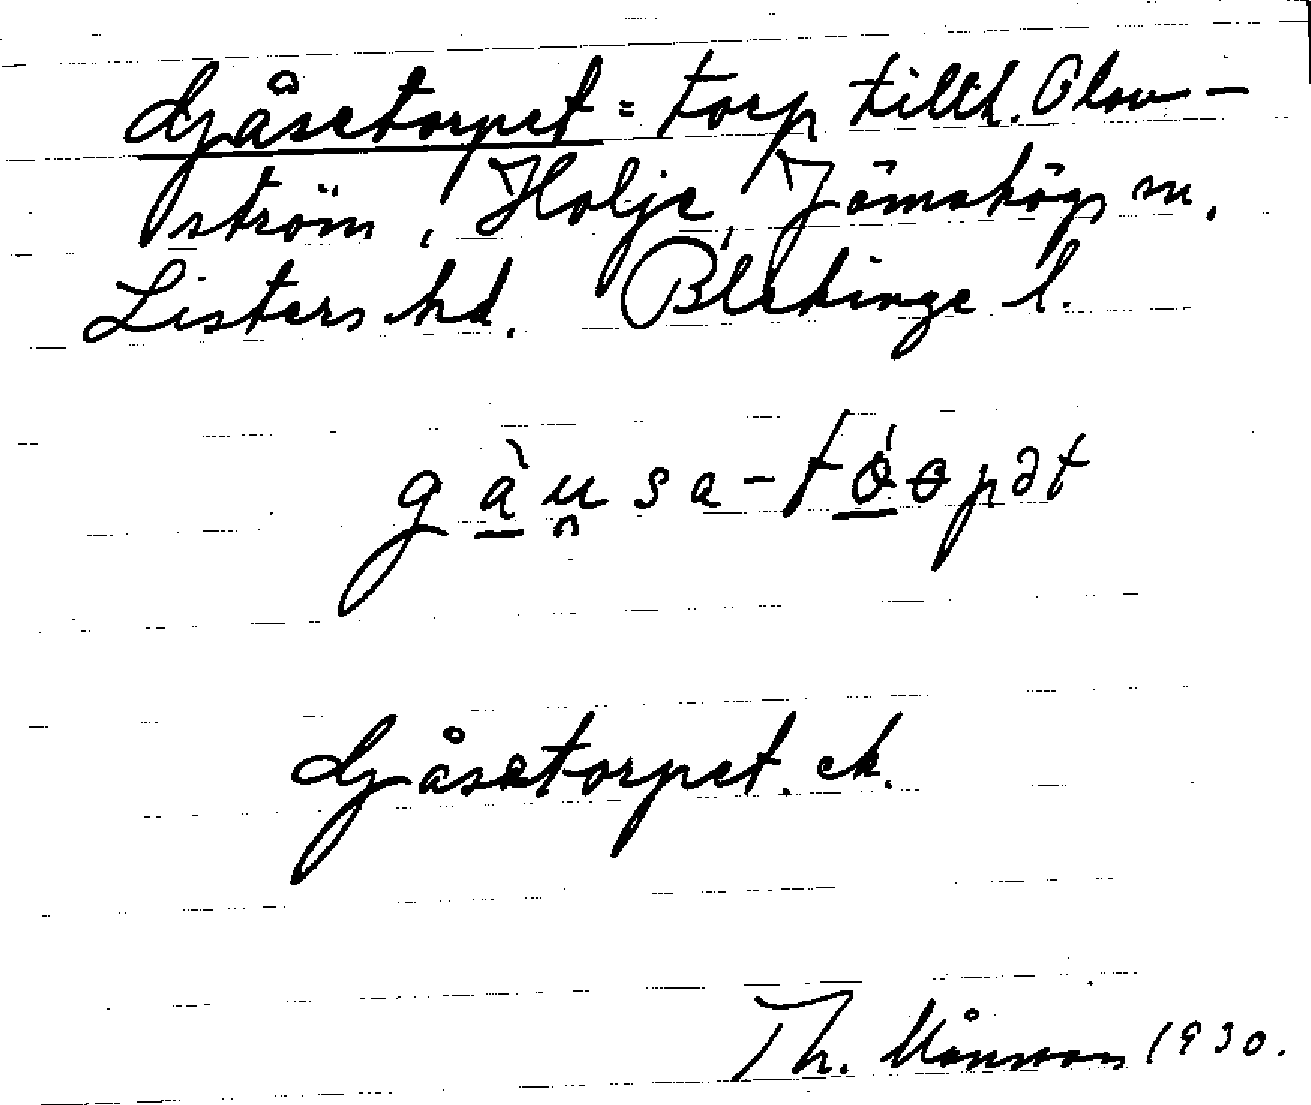 Gåsetorpet = torp tillh. Olov-
ström, Holje, Jämshögs sn,
Listers hd. Blekinge l.
gàu̯sa-tó̱ɵpət
Gåsetorpet. ek.
Th. Månsson 1930.